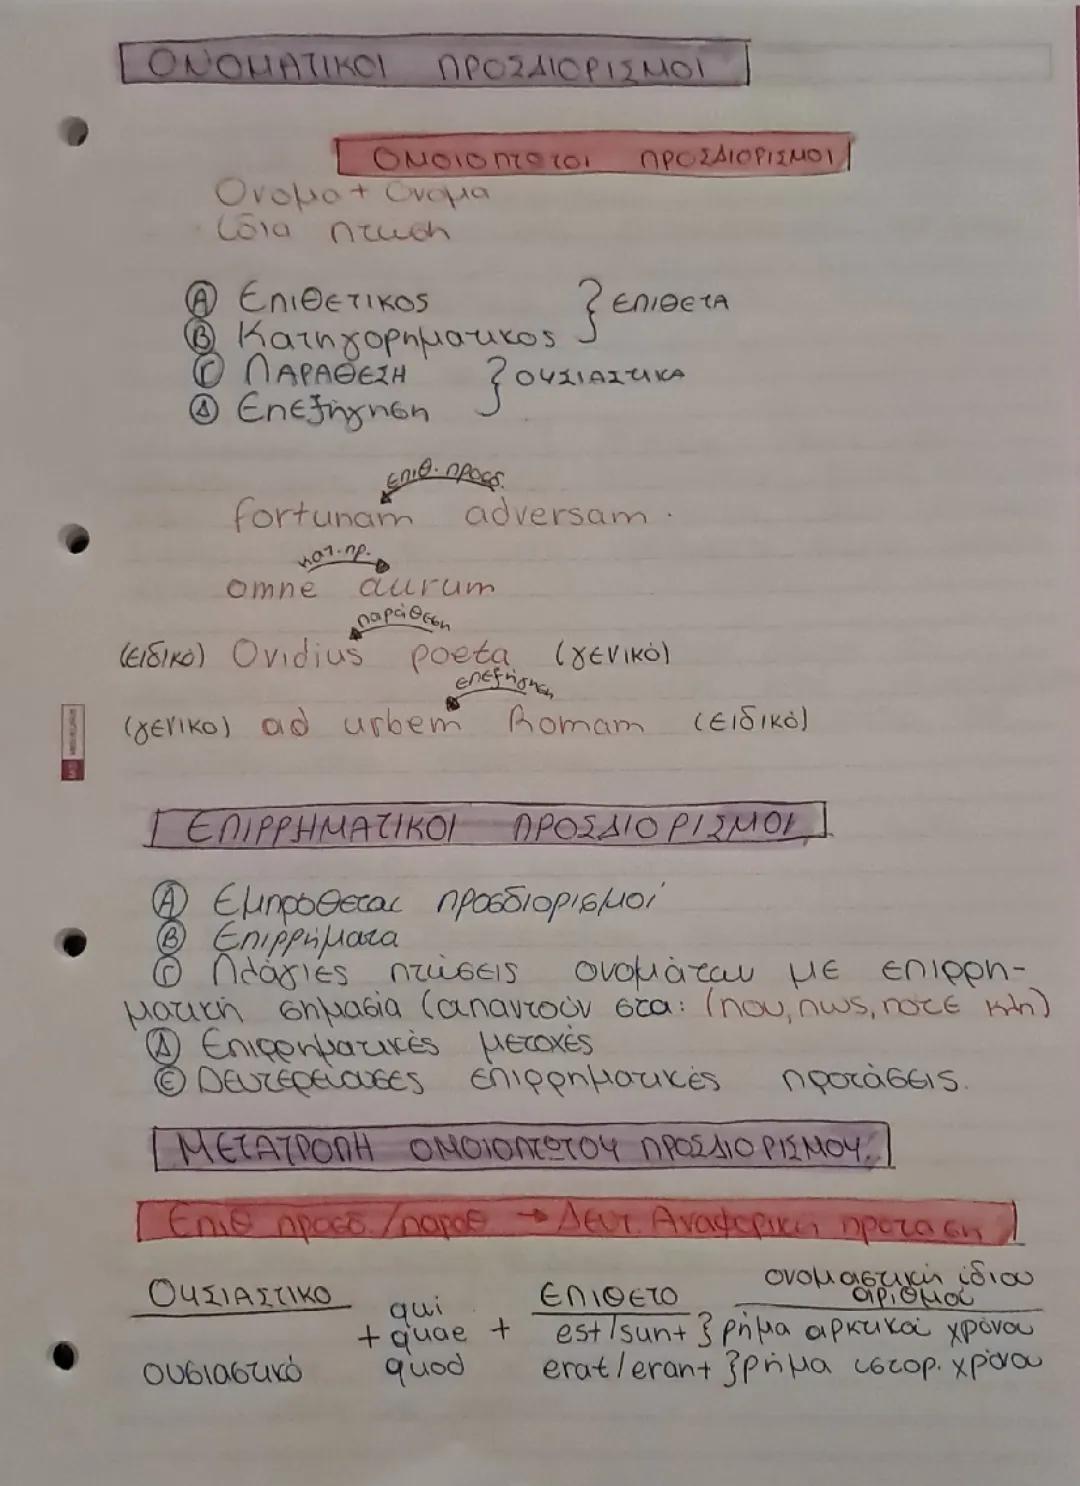 ΟΝΟΜΑΤΙΚΟΙ ΠΡΟΣΔΙΟΡΙΣΜΟΙ
ΟΜΟΙΟΠΤΩΤΟΙ ΠΡΟΣΔΙΟΡΙΣΜΟΙ
Ονομα + Ονομα
ίδια πτωση
Α Επιθετικος } ΕΠΙΘΕΤΑ
Β Κατηγορηματικος
Γ ΠΑΡΑΘΕΣΗ } ΟΥΣΙΑΣΤΙΚΑ
Δ Επεξήγηση
επιθ. προσδ.
fortunam adversam.
κατ. πρ.
omne aurum
παράθεση
(ειδικό) Ovidius poeta (γενικό)
επεξήγηση
(γενικο) ad urbem Romam (ειδικό)
ΕΠΙΡΡΗΜΑΤΙΚΟΙ ΠΡΟΣΔΙΟΡΙΣΜΟΙ
Α Εμπρόθετοι προσδιορισμοί
Β Επιρρήματα
Γ Πλάγιες πτώσεις ονομάτων με επιρρη-
ματική σημασία (απαντούν στα: (που, πως, ποτε κλπ)
Δ Επιρρηματικές μετοχές
Ε Δευτερεύουσες επιρρηματικές προτάσεις.
ΜΕΤΑΤΡΟΠΗ ΟΜΟΙΟΠΤΩΤΟΥ ΠΡΟΣΔΙΟΡΙΣΜΟΥ.
Επιθ προσδ./παραθ → Δευτ. Αναφορική προταση
ΟΥΣΙΑΣΤΙΚΟ + qui quae quod + ΕΠΙΘΕΤΟ ονομαστική ίδιου αριθμού
est/sunt } ρήμα αρκτικού χρόνου
ουσιαστικό erat/erant } ρήμα ιστορ. χρόνου